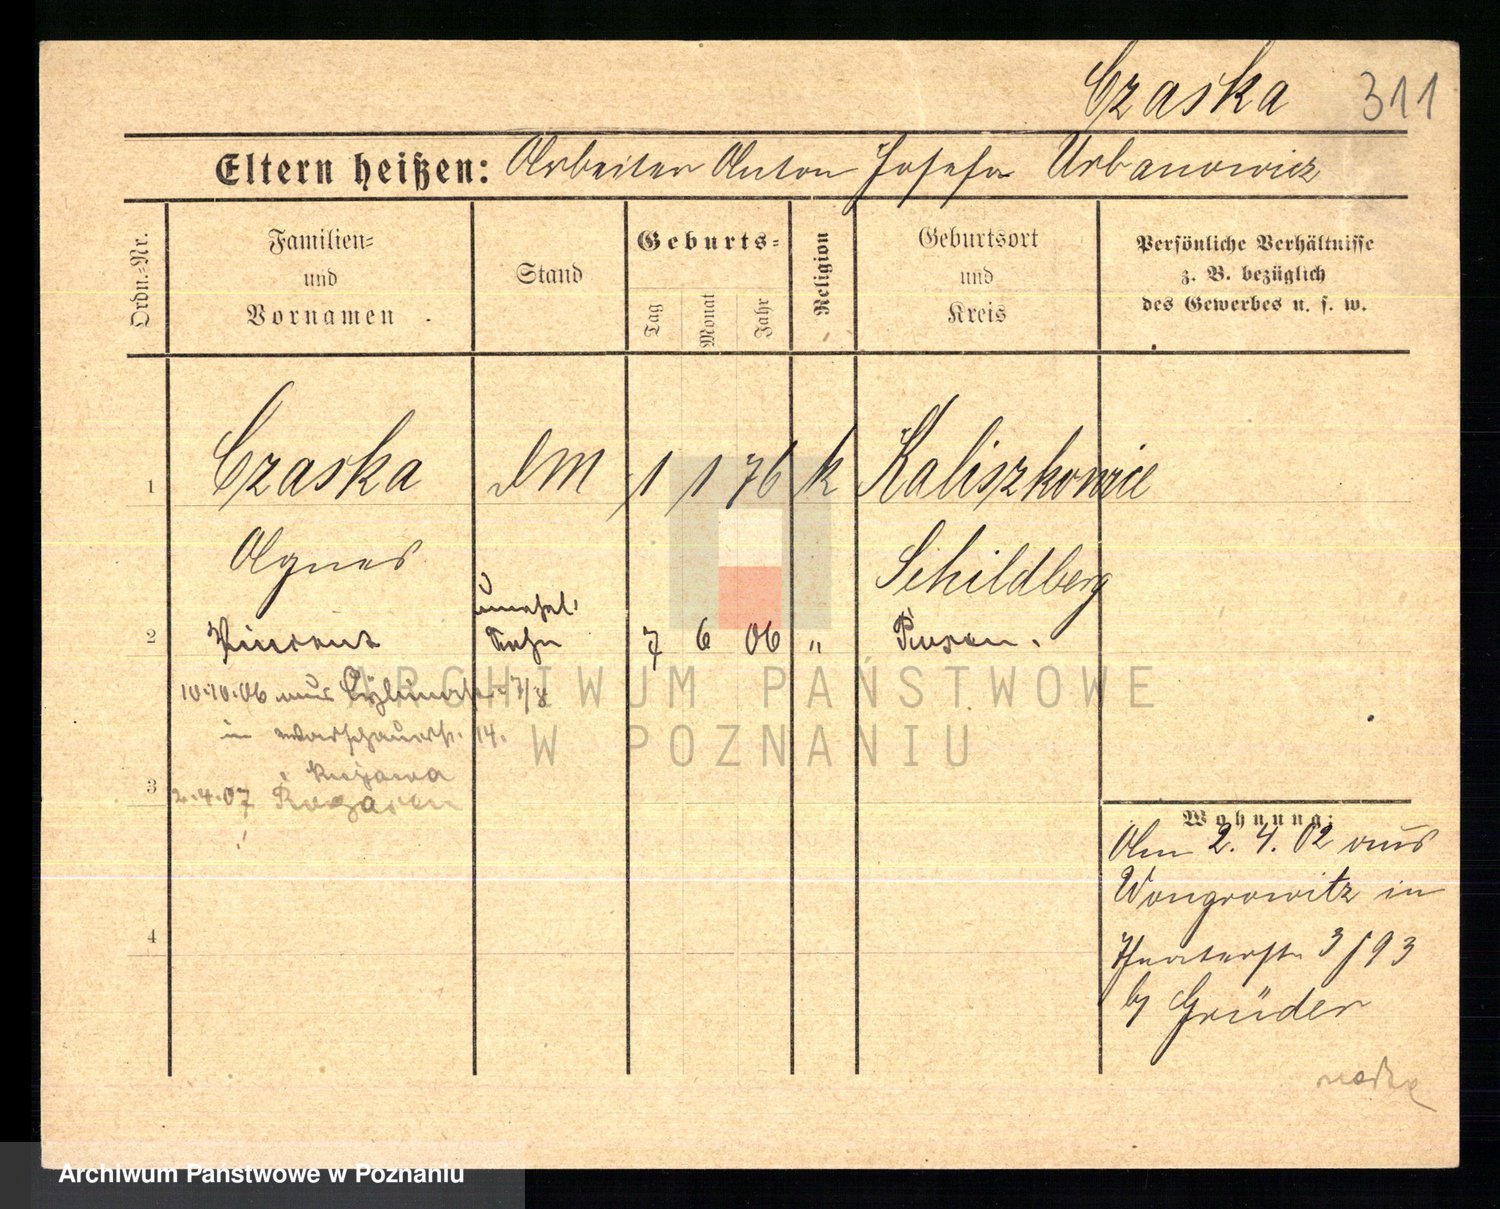 Czaska 311
Eltern heißen: Arbeiter Anton Josefa Urbanowicz
Ordn.-Nr.
Familien-
und
Vornamen
Stand
Geburts-
Tag
Monat
Jahr
Religion
Geburtsort
und
Kreis
Persönliche Verhältnisse
z. B. bezüglich
des Gewerbes u. s. w.
1 Czaska DM 1 1 76 k Kaliszkowice
Agnes Schildberg
unehel.
2 Vincent Sohn 7 6 06 " Posen.
10.10.06 aus 7/8
in Warschauerstr. 14.
Kujawa
3 2.4.07
4
Wohnung:
Am 2. 4. 02 aus
Wongrowitz in
Theaterstr 3 / 93
by Grüder
ARCHIWUM PAŃSTWOWE
W POZNANIU
Archiwum Państwowe w Poznaniu